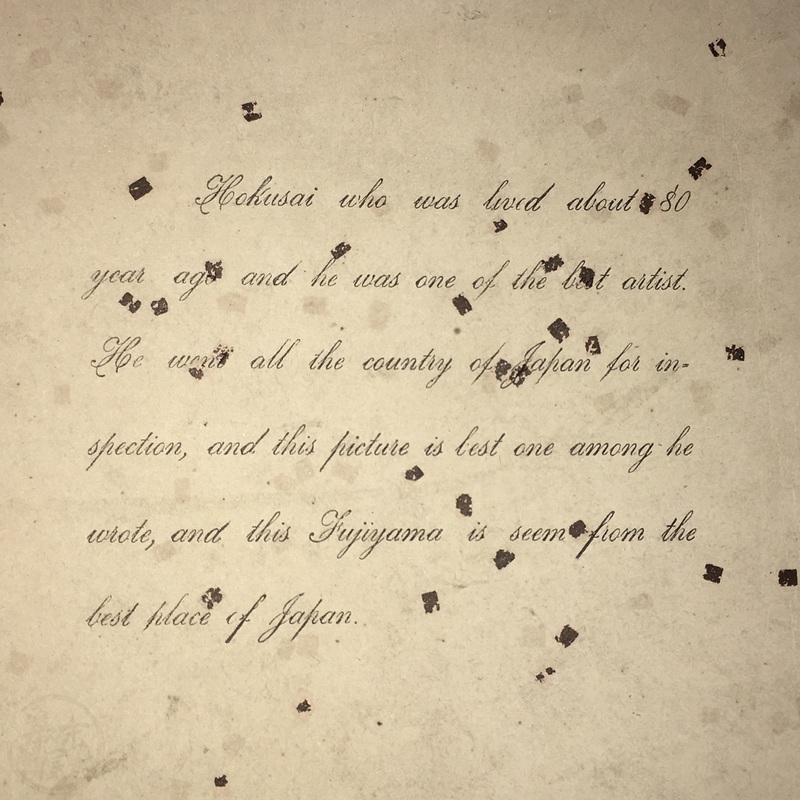 Hokusai who was lived about 80
year ago and he was one of the best artist.
He went all the country of Japan for in-
spection, and this picture is best one among he
wrote, and this Fujiyama is seem from the
best place of Japan.